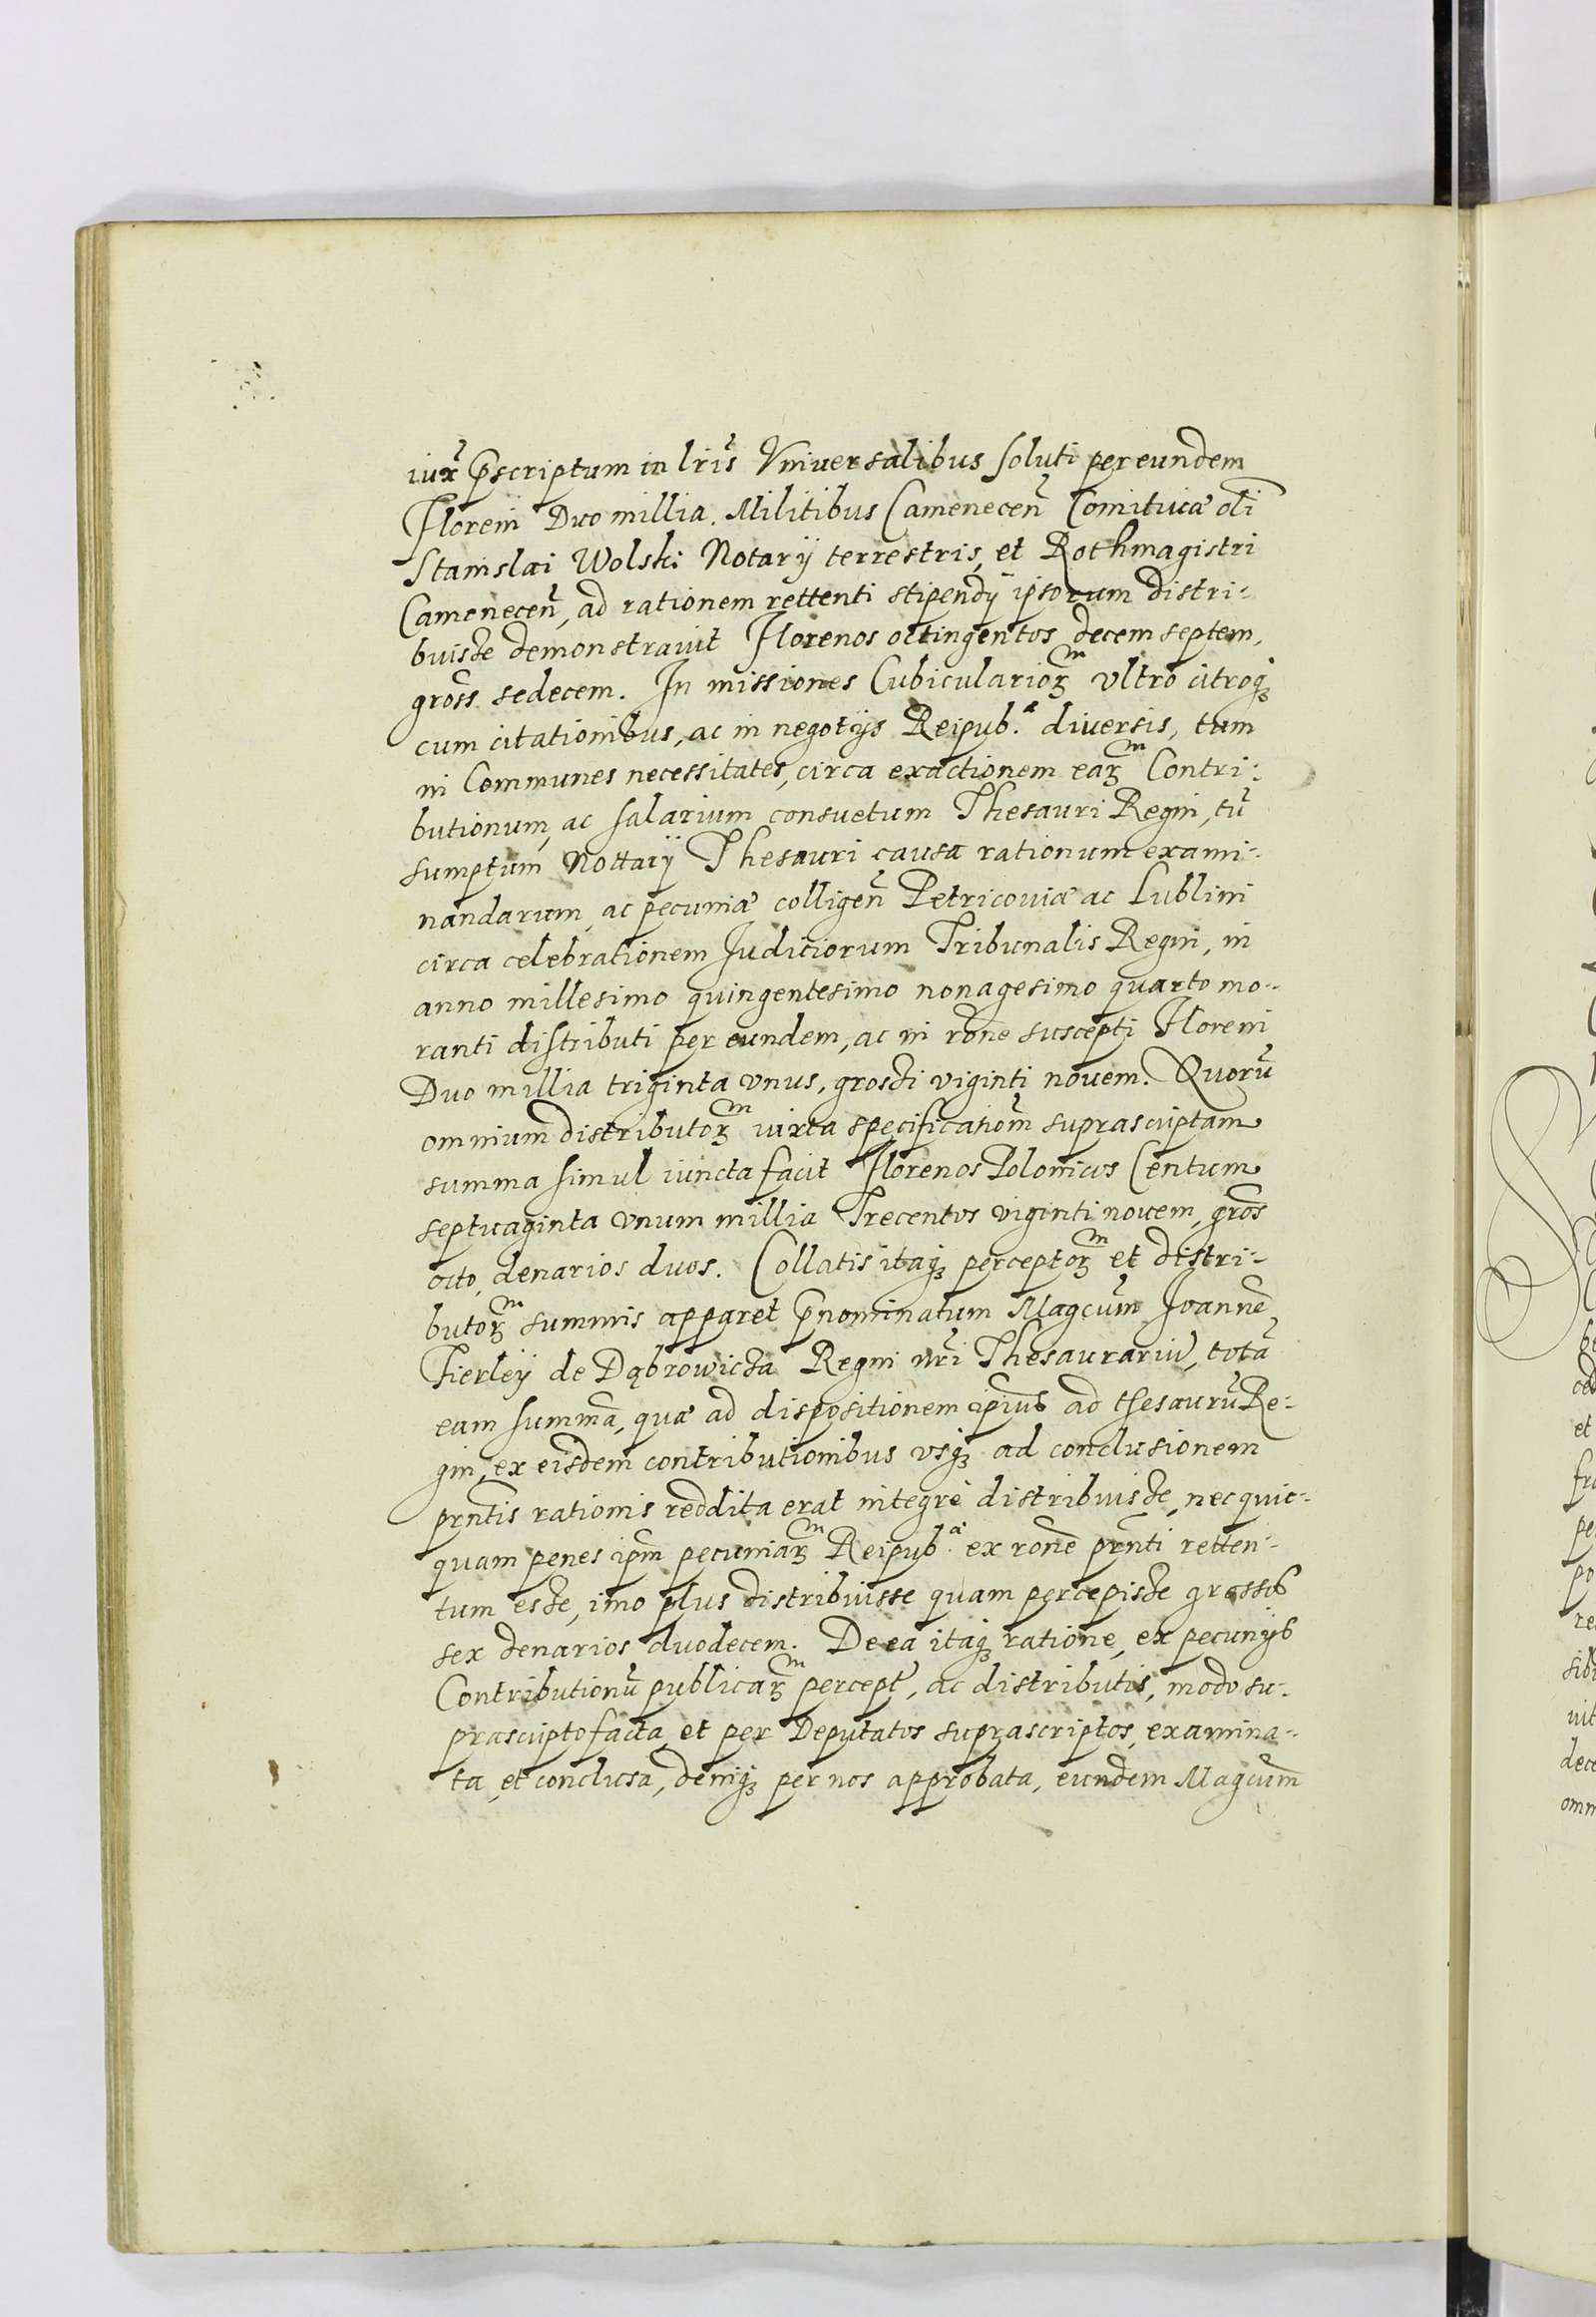 iux̃ p̃scriptum in lr̃is Vniuersalibus soluti per eundem
Floreni Duo millia. Militibus Camenecen̄ Comitiuæ oĩi
Stanislai Wolski Notarÿ terrestris, et Rothmagistri
Camenecen̄, ad rationem rettenti stipendÿ ipsorum distri-
buisse demonstrauit Florenos octingentos decem septem,
gross. sedecem. In missiones Cubicularioꝝᵐ vltro citroqꝫ
cum citationibus, ac in negotijs Reipub.ᵃᵉ diuersis, tum
in Communes necessitates, circa exactionem eaꝝᵐ Contri-
butionum, ac salarium consuetum Thesauri Regni, tū
sumptum Nottarÿ Thesauri causa rationum exami-
nandarum, ac pecuniæ colligen̄ Petricouiæ ac Lublini
circa celebrationem Iudiciorum Tribunalis Regni, in
anno millesimo quingentesimo nonagesimo quarto mo-
ranti distributi per eundem, ac in rōne suscepti Floreni
Duo millia triginta vnus, grossi viginti nouem. Quorū
omnium distributoꝝᵐ iuxta specificatiom̄ suprascriptam
summa simul iuncta facit Florenos Polonicos Centum
septuaginta vnum millia Trecentos viginti nouem, gros̄
octo, denarios duos. Collatis itaqꝫ perceptoꝝᵐ et distri-
butoꝝᵐ summis apparet p̃nominatum Magcum̄ Joannē
Fierleÿ de Dąbrowicza Regni nr̃i Thesaurariū, totā
eam summā, quæ ad dispositionem ipius̄ ad thesaurū Re-
gni, ex eisdem contributionibus vsqꝫ ad conclusionem
prñtis rationis reddita erat integrè distribuisse, nec quic-
quam penes ipm̄ pecuniaꝝᵐ Reipub.ᵃᵉ ex rōne prñti retten-
tum esse, imo plus distribuisse quam percepisse grossos
sex denarios duodecem. De ea itaqꝫ ratione, ex pecunijs
Contributionū publicaꝝᵐ percept̄, ac distributis, modo su-
prascripto facta, et per Deputatos suprascriptos, examina-
ta, et conclusa, deniqꝫ per nos approbata, eundem Magcum̄